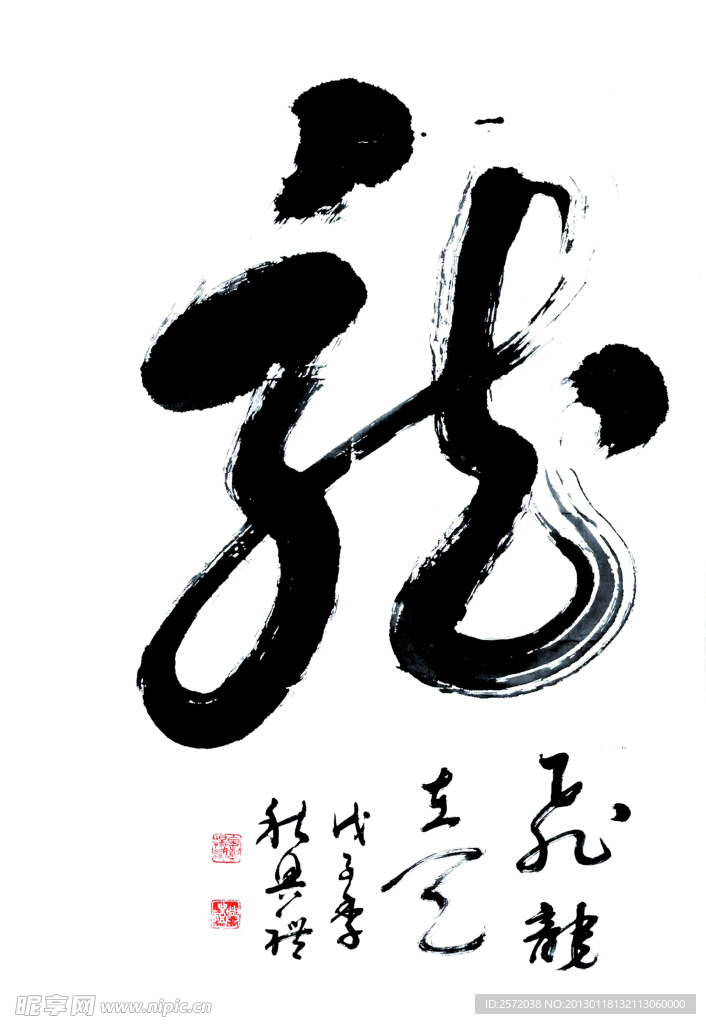 龍
飛龍
在天
戊子季
秋興禮
昵享网 www.nipic.cn
ID:2572038 NO:20130118132113060000